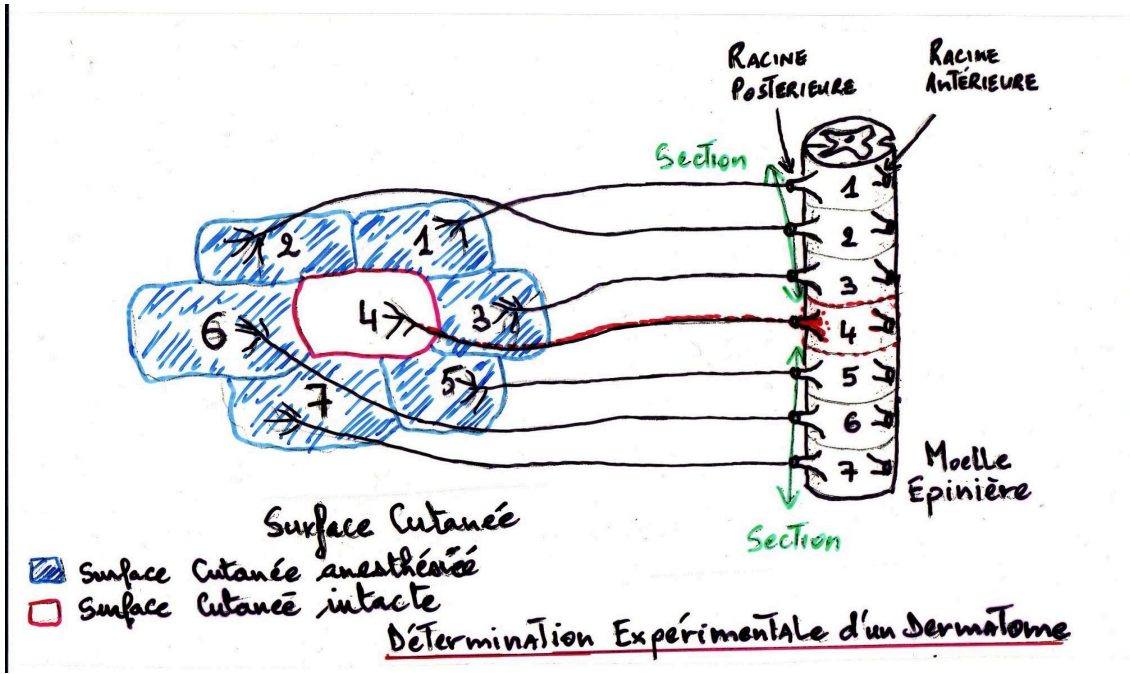 RACINE
POSTERIEURE
RACINE
ANTÉRIEURE
Section
1
2
3
4
5
6
7
2
1
6
4
3
7
5
Moelle
Epinière
Section
Surface Cutanée
Surface Cutanée anesthésiéé
Surface Cutanéé intacte
Détermination Expérimentale d'un Dermatome